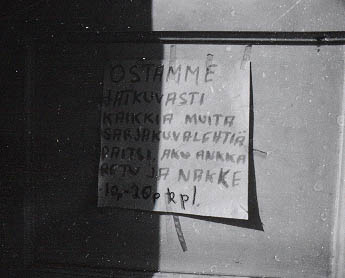 OSTAMME
JATKUVASTI
KAIKKIA MUITA
SARJAKUVALEHTIÄ
PAITSI, AKU ANKKA
RETU JA NAKKE
10p-20p kpl.